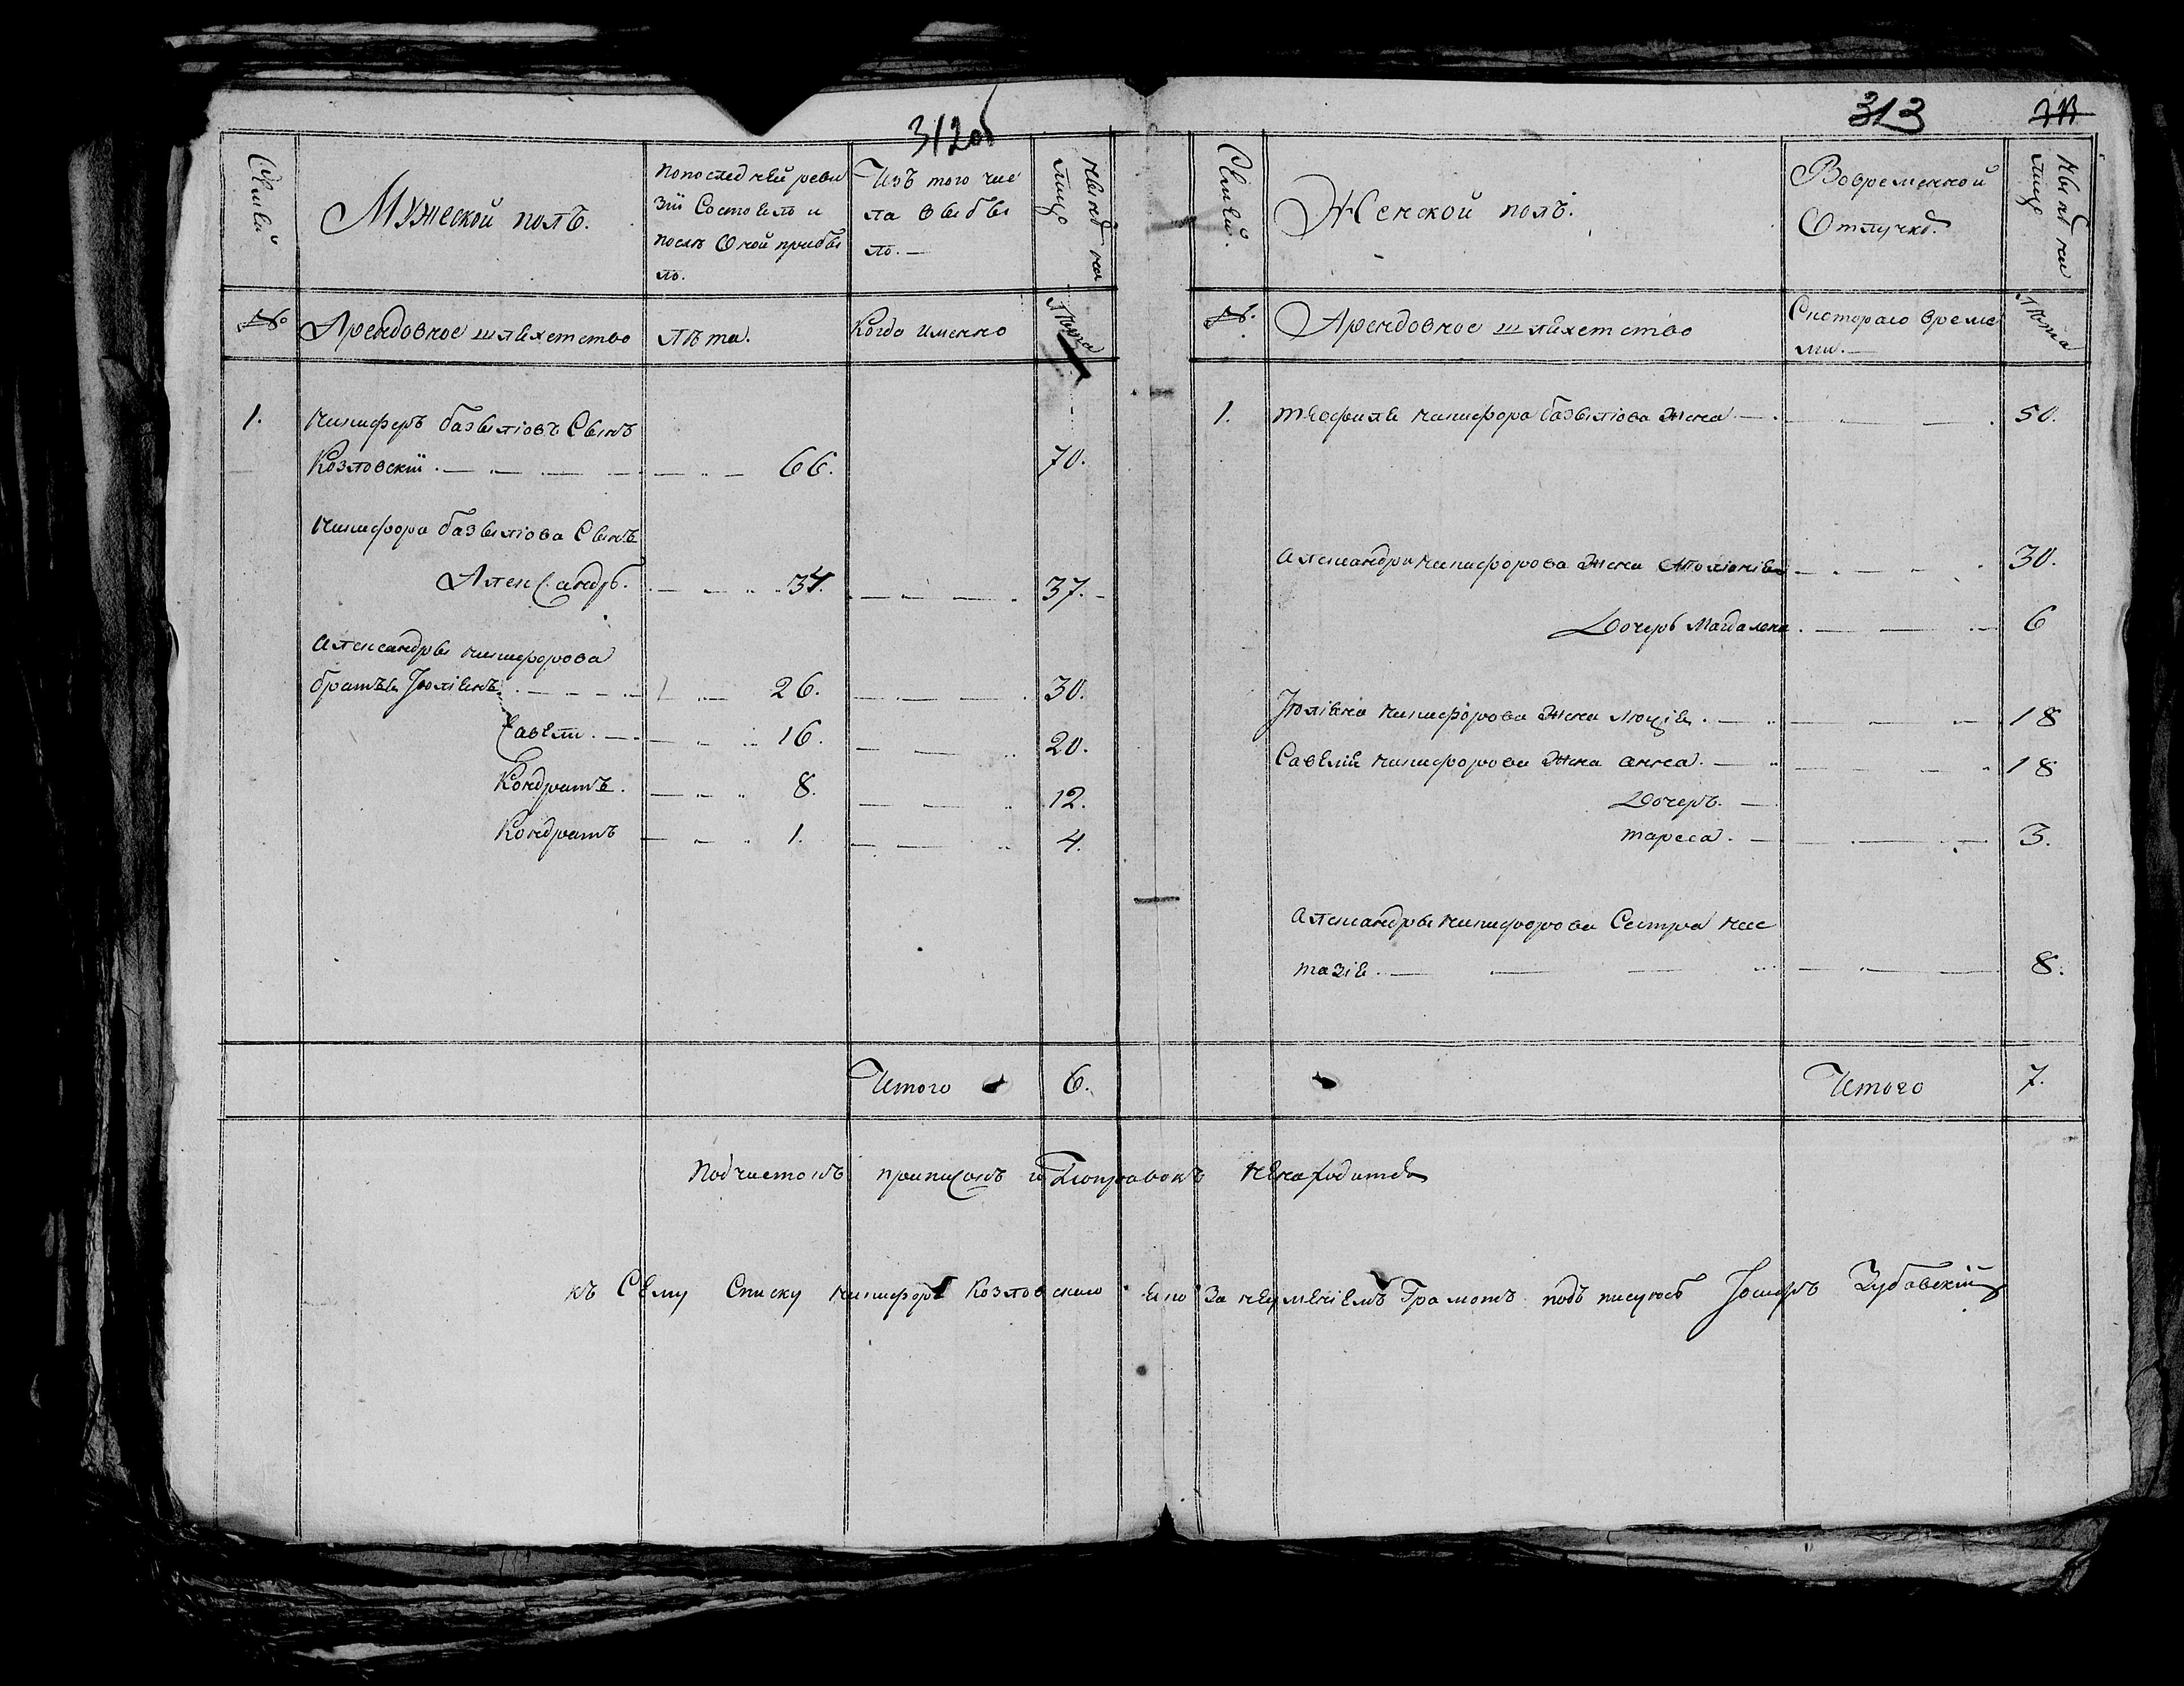 312об
Семьи
Мужеской полъ.
Попоследней реви
зіи Состоялъ и
послѣ Оной прибы
ло.
Изъ того чис
ла выбы
ло.—
Нынѣ на
лицо
№
Арендовное шляхетство
Лѣта.
Когда именно
Лѣта
1.
Никифоръ базылювъ Сынъ
Козловскій. 66. 70.
Никифора базылюва Сынъ
Александръ. 34. 37.
Александры никифорова
братья Іюліянъ 26. 30.
Савели. 16. 20.
Кондратъ. 8. 12.
Кондратъ 1. 4.
Итого 6.
313
Семьи.
Женской полъ.
Вовременной
Отлучкѣ.
Нынѣ на
лицо
№.
Арендовное шляхетство
Скотораго време
ни.—
Лѣта
1. теофиля никифора базылюва жена 50.
Александра никифорова жена 30.
Дочеръ Магдалена 6
Іюліяна никифорова жена люція 18
Савелія никифорова жена анна. 18
Дочеръ.
тареса. 3.
Александры никифорова Сестра нас
тазія. 8.
Итого 7.
Подчистокъ приписокъ и Поправокъ ненаходится
къ Сему Списку никифоръ Козловскаго его За неуменіемъ Грамотъ подъ писуюсь Іосифъ Зубовскій